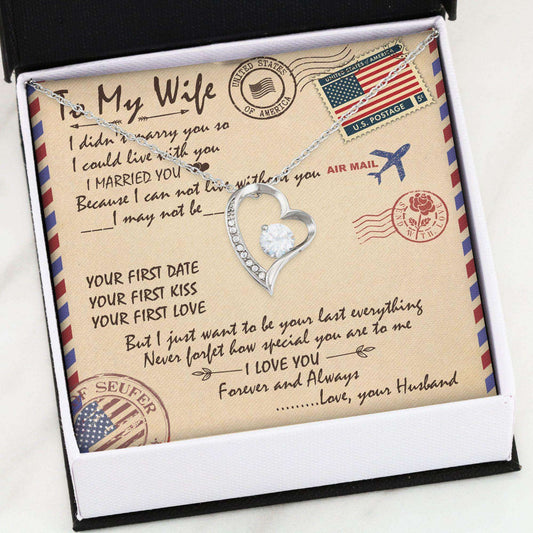 To My Wife
UNITED STATES
OF AMERICA
UNITED STATES OF AMERICA
U.S. POSTAGE
I didn't marry you so
I could live with you
I MARRIED YOU
Because I can not live without you
___I may not be___
AIR MAIL
SEND WITH LOVE
YOUR FIRST DATE
YOUR FIRST KISS
YOUR FIRST LOVE
But I just want to be your last everything
Never forfet how special you are to me
I LOVE YOU
Forever and Always
.........Love, your Husband
OF SEUFER